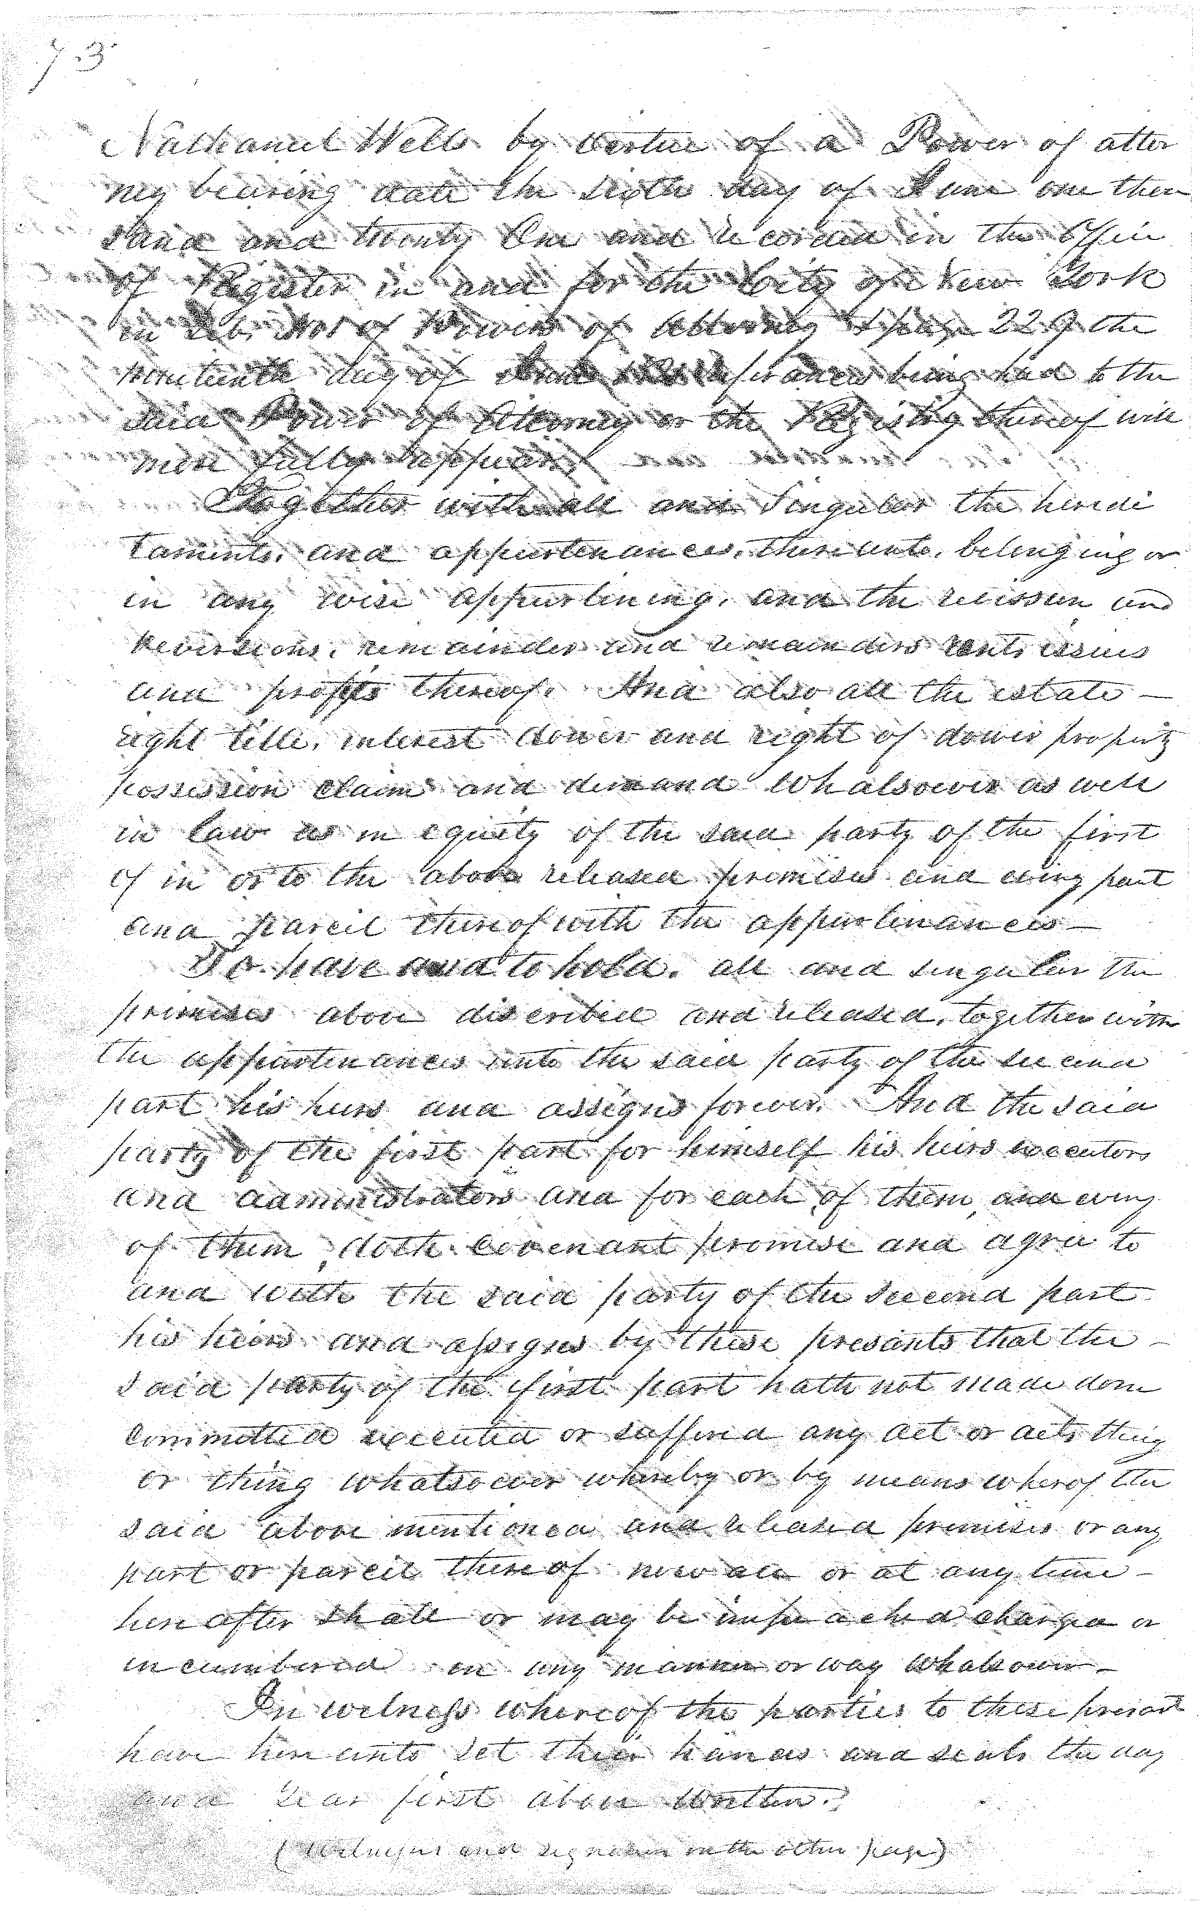 73
Nathaniel Wells by vertue of a Power of attor
ney bearing date the sixth day of June one thou
sand and twenty One and recorded in the Office
of Register in and for the City of New York
in Lib. of Powers of Attorney page 229 the
nineteenth day of being had to the
said Power of Attorney or the Registry thereof will
more fully appear
Together with all and Singular the heridi
taments, and appurtenances, thereunto, belonging or
in any wise appurtining, and the and
reversions, remainder and remainders rents issues
and profits thereof. And also all the estate —
right title, interest dower and right of dower property
possession claim and demand Whatsoever as well
in law as in equity of the said party of the first
of in or to the above released premises and every part
and parcel thereof with the appurtinances —
To have and to hold, all and singular the
premises above discribed and released, together with
the appurtenances unto the said party of the second
part his heirs and assigns forever. And the said
party of the first part for himself his heirs executors
and administrators and for each of them, and every
of them, doth covenant promise and agree to
and with the said party of the second part
his heirs and assigns by these presants that the —
said party of the first part hath not made done
committed executed or suffered any act or acts thing
or thing whatsoever whereby or by means wherof the
said above mentioned and released premises or any
part or parcel thereof now are or at any time —
here after shall or may be impeached charged or
incumbered in any manner or way whatsoever —
In witness whereof the parties to these presant
have here unto set their hands and seals the day
and year first above written.
(Witnesses and on the other page)